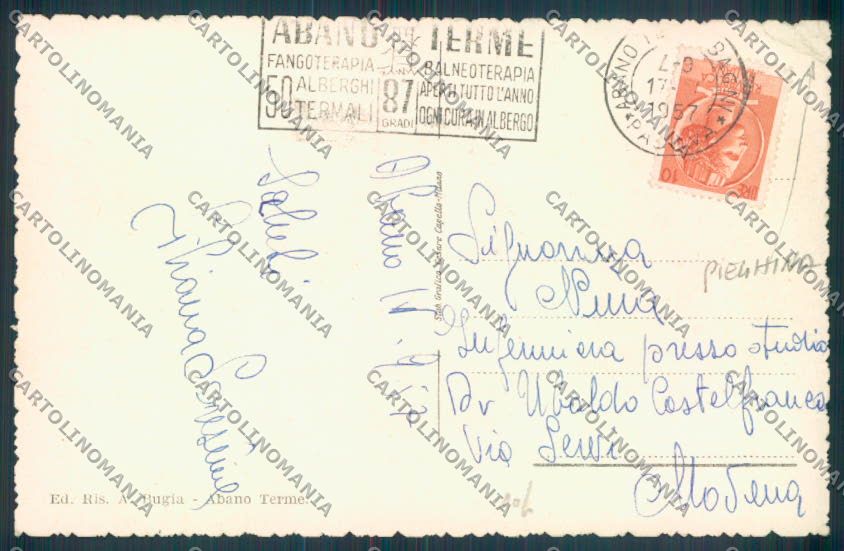 ABANO TERME
FANGOTERAPIA
50 ALBERGHI
TERMALI
87
GRADI
BALNEOTERAPIA
APERTI TUTTO L'ANNO
OGNI CURA IN ALBERGO
ABANO
BAGNI
17
1957
* PADOVA *
LIRE 10
Abano
Saluti
Signorina
Nina
Infermiera presso studio
Dr Ubaldo Castelfranco
Via Servi
Modena
PIEGHINA
Stab Grafico Cesare Capello-Milano
Ed. Ris. A. Bugia - Abano Terme.
CARTOLINOMANIA